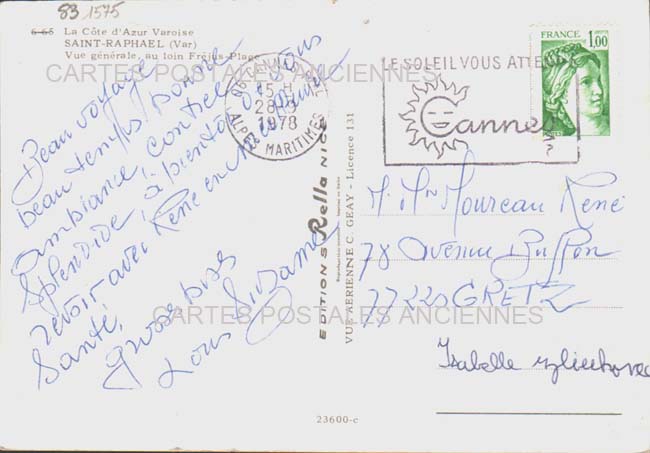 83 1575
6-65 La Côte d'Azur Varoise
SAINT-RAPHAEL (Var)
Vue générale, au loin Fréjus-Plage
CARTES POSTALES ANCIENNES
Beau voyage
beau temps bonne
ambiance, contree
splendide, à bientôt de vous
revoir avec René en
Santé,
grosse bises
Louis Suzanne
06 CANNES
15 H
28-9
1978
ALPES MARITIMES
LE SOLEIL VOUS ATTEND A
Cannes
FRANCE
1,00
POSTES
EDITIONS Rella NICE
VUE AERIENNE C. GEAY - Licence 131
M. Mme Moureau René
78 Avenue Buffon
77220 GRETZ
CARTES POSTALES ANCIENNES
Isabelle
23600-c